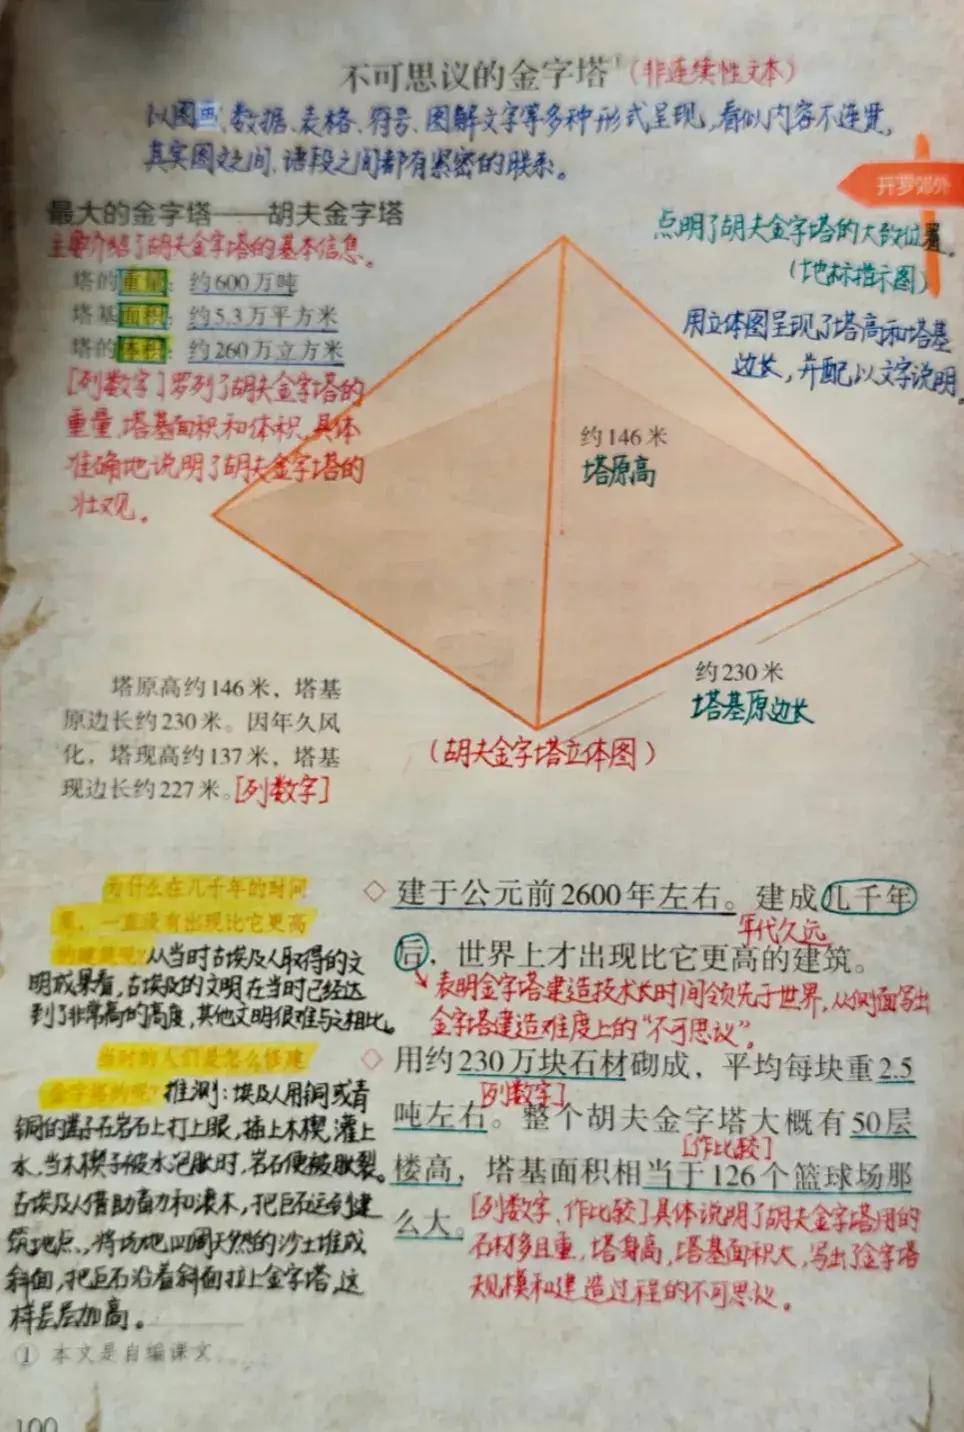 不可思议的金字塔①(非连续性文本)
以图画、数据、表格、符号、图解文字等多种形式呈现,看似内容不连贯,
其实图文之间、语段之间都有紧密的联系。
开罗郊外
点明了胡夫金字塔的大致位置。
(地标指示图)
用立体图呈现了塔高和塔基
边长,并配以文字说明。
最大的金字塔——胡夫金字塔
主要介绍了胡夫金字塔的基本信息。
塔的重量:约600万吨
塔基面积:约5.3万平方米
塔的体积:约260万立方米
[列数字]罗列了胡夫金字塔的
重量、塔基面积和体积,具体
准确地说明了胡夫金字塔的
壮观。
约146米
塔原高
约230米
塔基原边长
(胡夫金字塔立体图)
塔原高约146米,塔基
原边长约230米。因年久风
化,塔现高约137米,塔基
现边长约227米。[列数字]
为什么在几千年的时间
里,一直没有出现比它更高
的建筑呢?从当时古埃及人取得的文
明成果看,古埃及的文明在当时已经达
到了非常高的高度,其他文明很难与之相比。
当时的人们是怎么修建
金字塔的呢?推测:埃及人用铜或青
铜的凿子在岩石上打上眼,插上木楔,灌上
水,当木楔子被水泡胀时,岩石便被胀裂。
古埃及人借助畜力和滚木,把巨石运到建
筑地点,将场地四周天然的沙土堆成
斜面,把巨石沿着斜面拉上金字塔,这
样层层加高。
◇ 建于公元前2600年左右。建成几千年
年代久远
后,世界上才出现比它更高的建筑。
表明金字塔建造技术长时间领先于世界,从侧面写出
金字塔建造难度上的“不可思议”。
◇ 用约230万块石材砌成,平均每块重2.5
[列数字]
吨左右。整个胡夫金字塔大概有50层
[作比较]
楼高,塔基面积相当于126个篮球场那
么大。
[列数字、作比较]具体说明了胡夫金字塔用的
石材多且重,塔身高,塔基面积大,写出了金字塔
规模和建造过程的不可思议。
① 本文是自编课文。
100